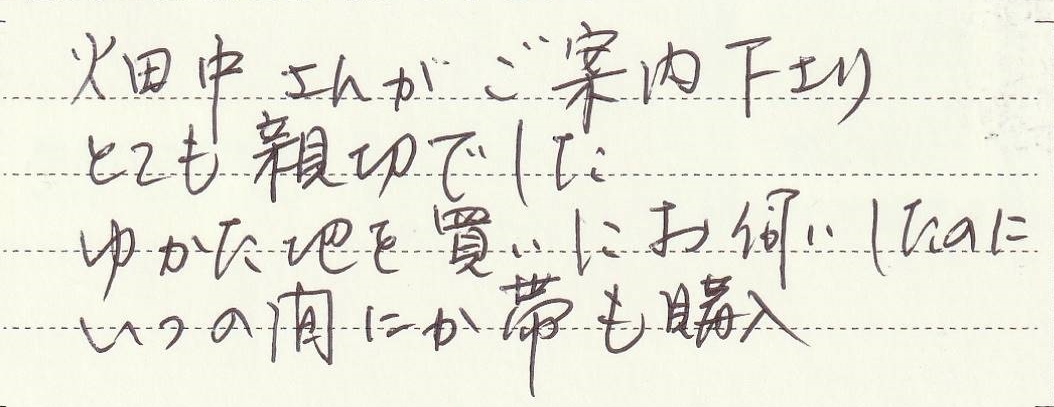 畑中さんがご案内下さり
とても親切でした
ゆかた地を買いにお伺いしたのに
いつの間にか帯も購入